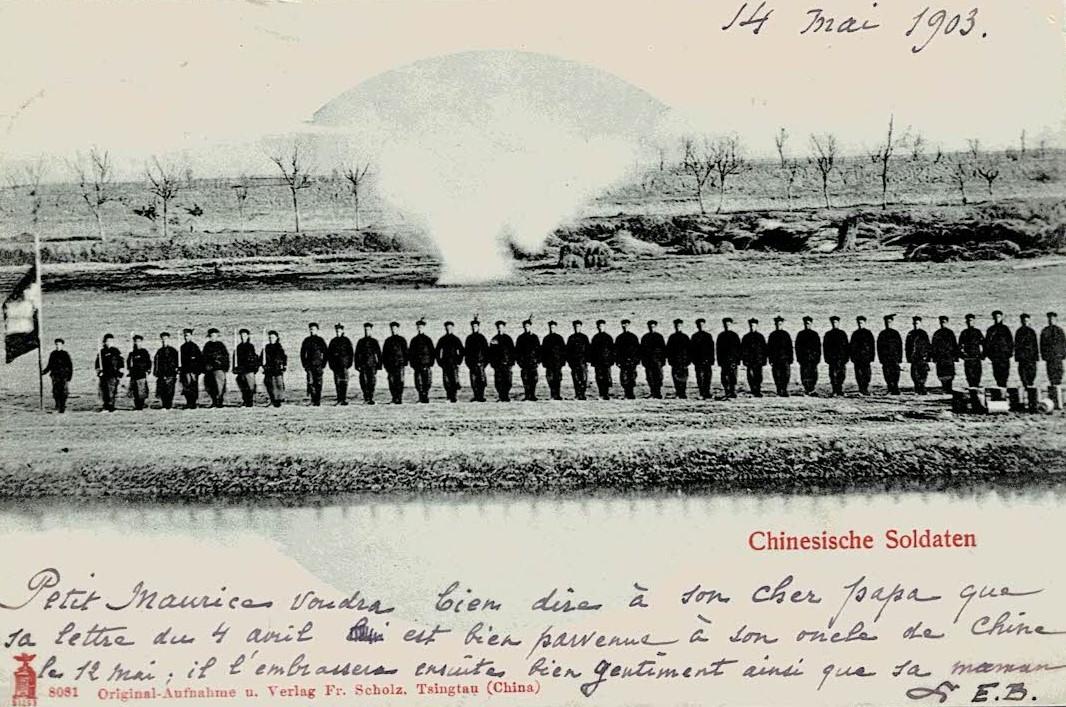 14 Mai 1903.
Chinesische Soldaten
Petit Maurice voudra bien dire à son cher papa que
sa lettre du 4 avril est bien parvenue à son oncle de Chine
le 12 Mai ; il l'embrassera ensuite bien gentiment ainsi que sa maman
E.B.
8081 Original-Aufnahme u. Verlag Fr. Scholz, Tsingtau (China)